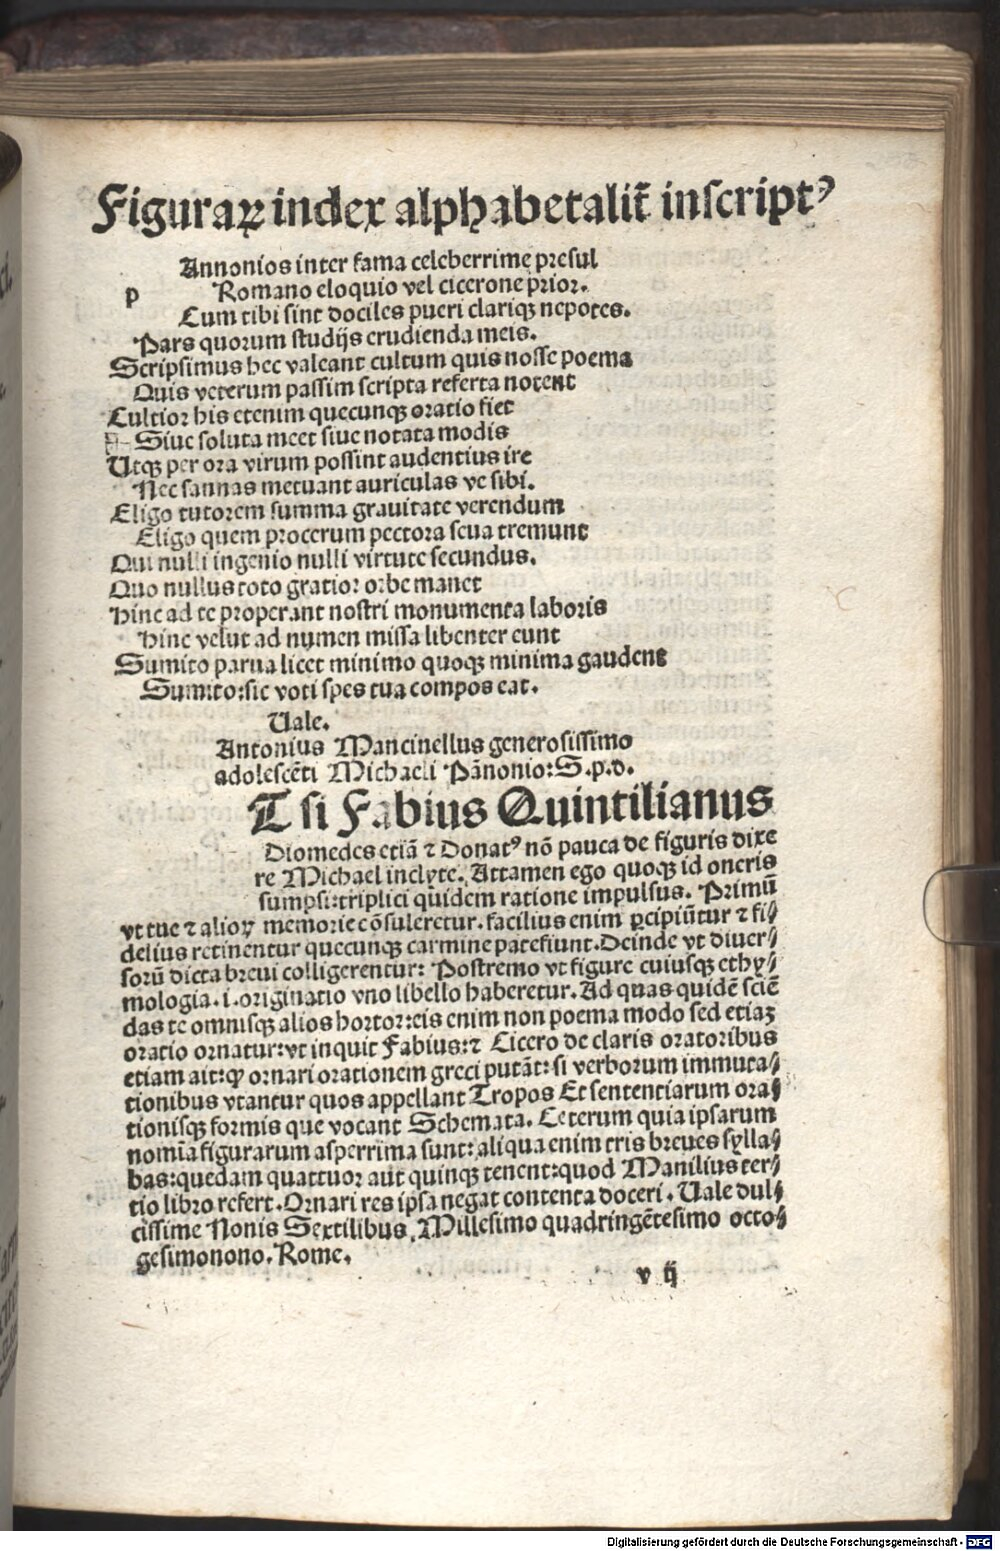 Figuraꝝ index alphabetalit̄ inscriptꝰ
Annonios inter fama celeberrime presul
p Romano eloquio vel cicerone prior.
Cum tibi sint dociles pueri clariqꝫ nepotes.
Pars quorum studijs erudienda meis.
Scripsimus hec valeant cultum quis nosse poema
Quis veterum passim scripta referta notent
Cultior his etenim quecunqꝫ oratio fiet
Siue soluta meet siue notata modis
Utqꝫ per ora virum possint audentius ire
Nec sannas metuant auriculas ve sibi.
Eligo tutorem summa grauitate verendum
Eligo quem procerum pectora seua tremunt
Qui nulli ingenio nulli virtute secundus.
Quo nullus toto gratior orbe manet
Hinc ad te properant nostri monumenta laboris
Hinc velut ad numen missa libenter eunt
Sumito parua licet minimo quoqꝫ minima gaudent
Sumito:sic voti spes tua compos eat.
Uale.
Antonius Mancinellus generosissimo
adolescēti Michaeli Pānonio:S.p.d.
T si Fabius Quintilianus
Diomedes etiā ⁊ Donatꝰ nō pauca de figuris dixe
re Michael inclyte. Attamen ego quoqꝫ id oneris
sumpsi:triplici quidem ratione impulsus. Primū
vt tue ⁊ alioꝝ memorie cōsuleretur. facilius enim ꝑcipiūtur ⁊ fi⸗
delius retinentur quecunqꝫ carmine patefiunt. Deinde vt diuer⸗
sorū dicta breui colligerentur: Postremo vt figure cuiusqꝫ ethy⸗
mologia.i.originatio vno libello haberetur. Ad quas quidē sciē
das te omnisqꝫ alios hortor:eis enim non poema modo sed etiaꝫ
oratio ornatur:vt inquit Fabius:⁊ Cicero de claris oratoribus
etiam ait:ꝙ ornari orationem greci putāt: si verborum immuta⸗
tionibus vtantur quos appellant Tropos Et sententiarum ora⸗
tionisqꝫ formis que vocant Schemata. Ceterum quia ipsarum
nomīa figurarum asperrima sunt: aliqua enim tris breues sylla⸗
bas:quedam quattuor aut quinqꝫ tenent:quod Manilius ter⸗
tio libro refert. Ornari res ipsa negat contenta doceri. Uale dul⸗
cissime Nonis Sextilibus. Millesimo quadringētesimo octo⸗
gesimonono. Rome.
v ij
Digitalisierung gefördert durch die Deutsche Forschungsgemeinschaft - DFG